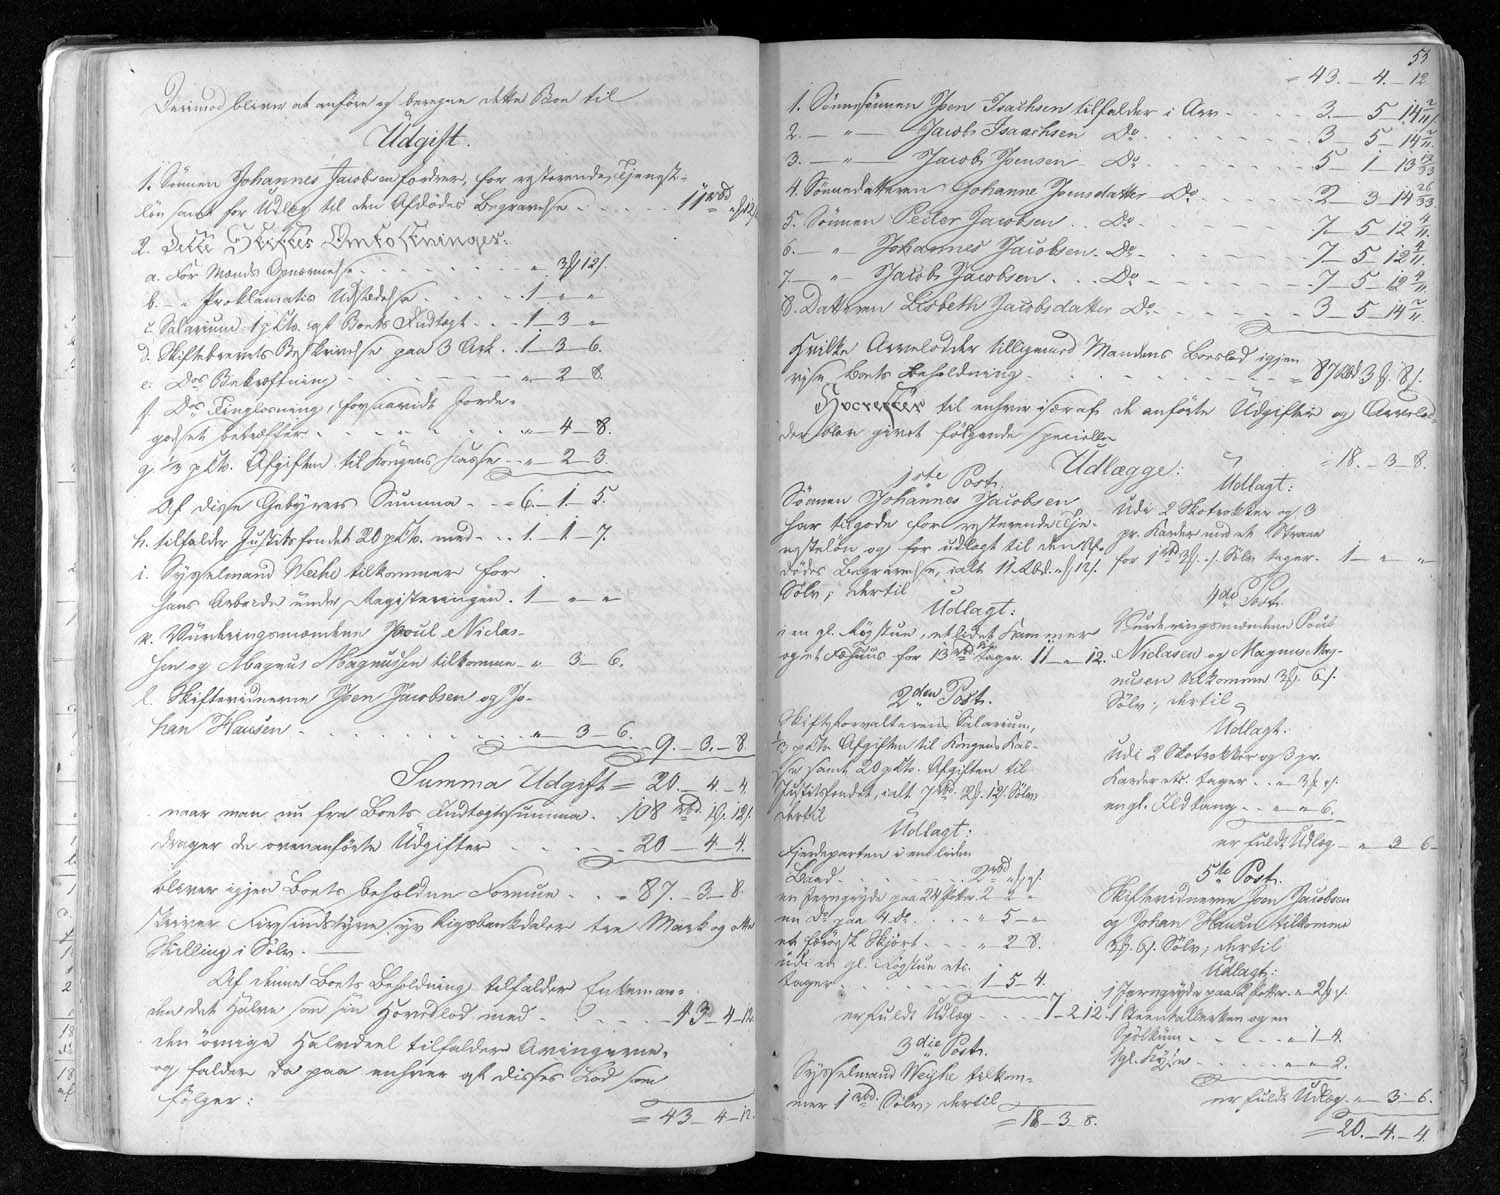 Derimod bliver at anføre og beregne dette Boe til
Udgift.
1. Sønnen Johannes Jacobsen fordrer, for resterende Tjenest-
løn samt for Udlæg til den Afdødes Begravelse - - - - 11 rbd " ß 12 s.
2. Dette Skiftes Omkostninger:
a. For Mands Opnævnelse - - - - - " 3 ß 12 s.
b. - " Proklamatis Udstædelse - - - - 1 - " - "
c. Salarium 1 pCto. af Boets Indtægt - - - 1 - 3 - "
d. Skiftebrevets Beskrivelse paa 3 Ark - - 1 - 3 - 6.
e. Dos Bekræftning - - - - - " - 2 - 8.
f. Dos Tinglæsning, forsaavidt Jorde-
godset betræffer - - - - - " - 4 - 8.
g. 1/3 pCto. Afgiften til Kongens Casse - - " - 2 - 3.
Af disse Gebyrers Summa - - = 6. - 1 - 5.
h. tilfalder Justitsfondet 20 pCto. med - - 1. - 1 - 7.
i. Sysselmand Weihe tilkommer for
hans Arbeide under Registeringen . 1 - " - "
k. Vurderingsmændene Poul Niclas-
sen og Magnus Magnussen tilkomme - " - 3 - 6.
l. Skiftevidnerne Joen Jacobsen og Jo-
han Hansen - - - - - - " - 3 - 6. 9. - 3. - 8.
Summa Udgift = 20. - 4 - 4.
naar man nu fra Boets Indtægtssumma - 108 rbd. 1 ß. 12 s.
drager de ovenanførte Udgifter - - - - 20 - 4 - 4.
bliver igjen Boets beholdne Formue - - = 87. - 3 - 8.
skriver Firsindstyve syv Rigsbankdaler tre Mark og otte
Skilling i Sølv.
Af denne Boets Beholdning tilfalder Enkeman-
den det Halve som sin Hovedlod med - - - - 43 - 4 - 12.
den øvrige Halvdeel tilfalder Arvingerne,
og falder da paa enhver af disses Lod som
følger:
= 43 - 4 - 12.
53
= 43. - 4. - 12
1. Sønnesønnen Joen Isachsen tilfalder i Arv - - - - 3. - 5 - 14 2/11.
2. - " - Jacob Isachsen Do - - - - 3 - 5 - 14 2/11.
3. - " - Jacob Joensen - Do - - - - 5 - 1 - 13 19/33
4. Sønnedatteren Johanne Joensdatter Do - - - 2 - 3 - 14 26/33
5. Sønnen Peder Jacobsen - - Do - - - - 7 - 5 - 12 4/11.
6. - " Johannes Jacobsen - Do - - - - 7 - 5 - 12 4/11.
7. - " - Jacob Jacobsen - - Do - - - - 7 - 5 - 12 4/11.
8. Datteren Lisbeth Jacobsdatter Do - - - - 3 - 5 - 14 2/11.
Hvilke Arvelodder tilligemed Mandens Boeslod igjen
vise Boets Beholdning - - - - - - = 87 rbd 3 ß. 8 s.
Hvorefter til enhver især af de anførte Udgifter og Arvelod-
der blev givet følgende specielle
Udlægge:
1ste Post.
Sønnen Johannes Jacobsen
har tilgode for resterende Tje-
nesteløn og for udlagt til den Af-
dødes Begravelse, ialt 11 Rbd. " ß 12 s.
Sølv; dertil
Udlagt:
i en gl. Røgstue, et lidet Kammer
og et Fæhuus for 13 rbd tager 11 - " - 12.
2den Post.
Skifteforvalterens Salarium,
1/3 pCto Afgiften til Kongens Kas-
se samt 20 pCto. Afgiften til
Justitsfondet, ialt 7 rbd. 2 ß. 12 s. Sølv
dertil
Udlagt:
Fjerdeparten i en liden
Baad - - - - - 2 rbd " ß " s.
en Jerngryde paa 24 Potter 2 2 "
en Do paa 4 do. - - - " - 5 - "
et færøisk Skjört - - - " 2 8.
udi en gl. Røgstue etc.
tager - - - - - 1 5 4.
er fuldt Udlæg - - - 7 - 2 12.
3die Post.
Sysselmand Weyhe tilkom-
mer 1 rbd. Sølv, dertil
= 18 - 3 - 8.
= 18. - 3 - 8.
Udlagt:
Udi 2 Skotrokker og 3
pr. Karder med et
for 1 rbd 3 ß. " s. Sølv tager - 1 - " - "
4de Post.
Vurderingsmændene Poul
Niclasen og Magnus Mag-
nusen tilkomme 3 ß. 6 s.
Sølv; dertil
Udlagt:
Udi 2 Skotrokker og 3 pr.
Karder etc. tager - - " 3 ß " s.
en gl. Ildtang - - " - " - 6.
er fuldt Udlæg - " - 3 - 6 -
5te Post.
Skiftevidnerne Joen Jacobsen
og Johan Hansen tilkomme
3 ß. 6 s. Sølv; dertil
Udlagt:
1 Jerngryde paa 2 Potter - " 2 ß " s.
1 Steentallerken og en
Spølkum - - - - - " - 1 - 4.
1 gl. Kyse - - - - - " - " - 2.
er fuldt Udlæg - " - 3 - 6.
= 20. - 4. - 4.